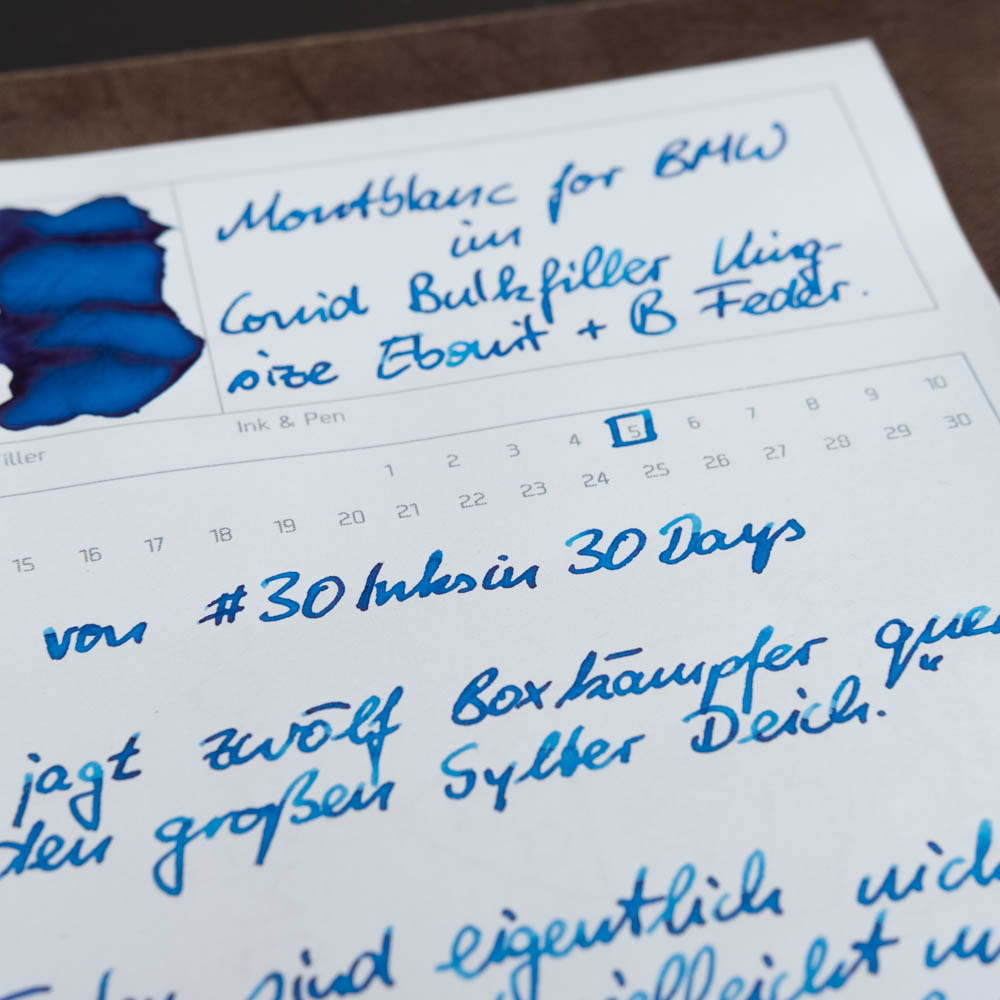 Montblanc for BMW
im
Conid Bulkfiller King-
size Ebonit + B Feder.
Ink & Pen
1 2 3 4 5 6 7 8 9 10
15 16 17 18 19 20 21 22 23 24 25 26 27 28 29 30
von #30Inksin30Days
jagt zwölf Boxkämpfer quer
den großen Sylter Deich."
sind eigentlich
vielleicht